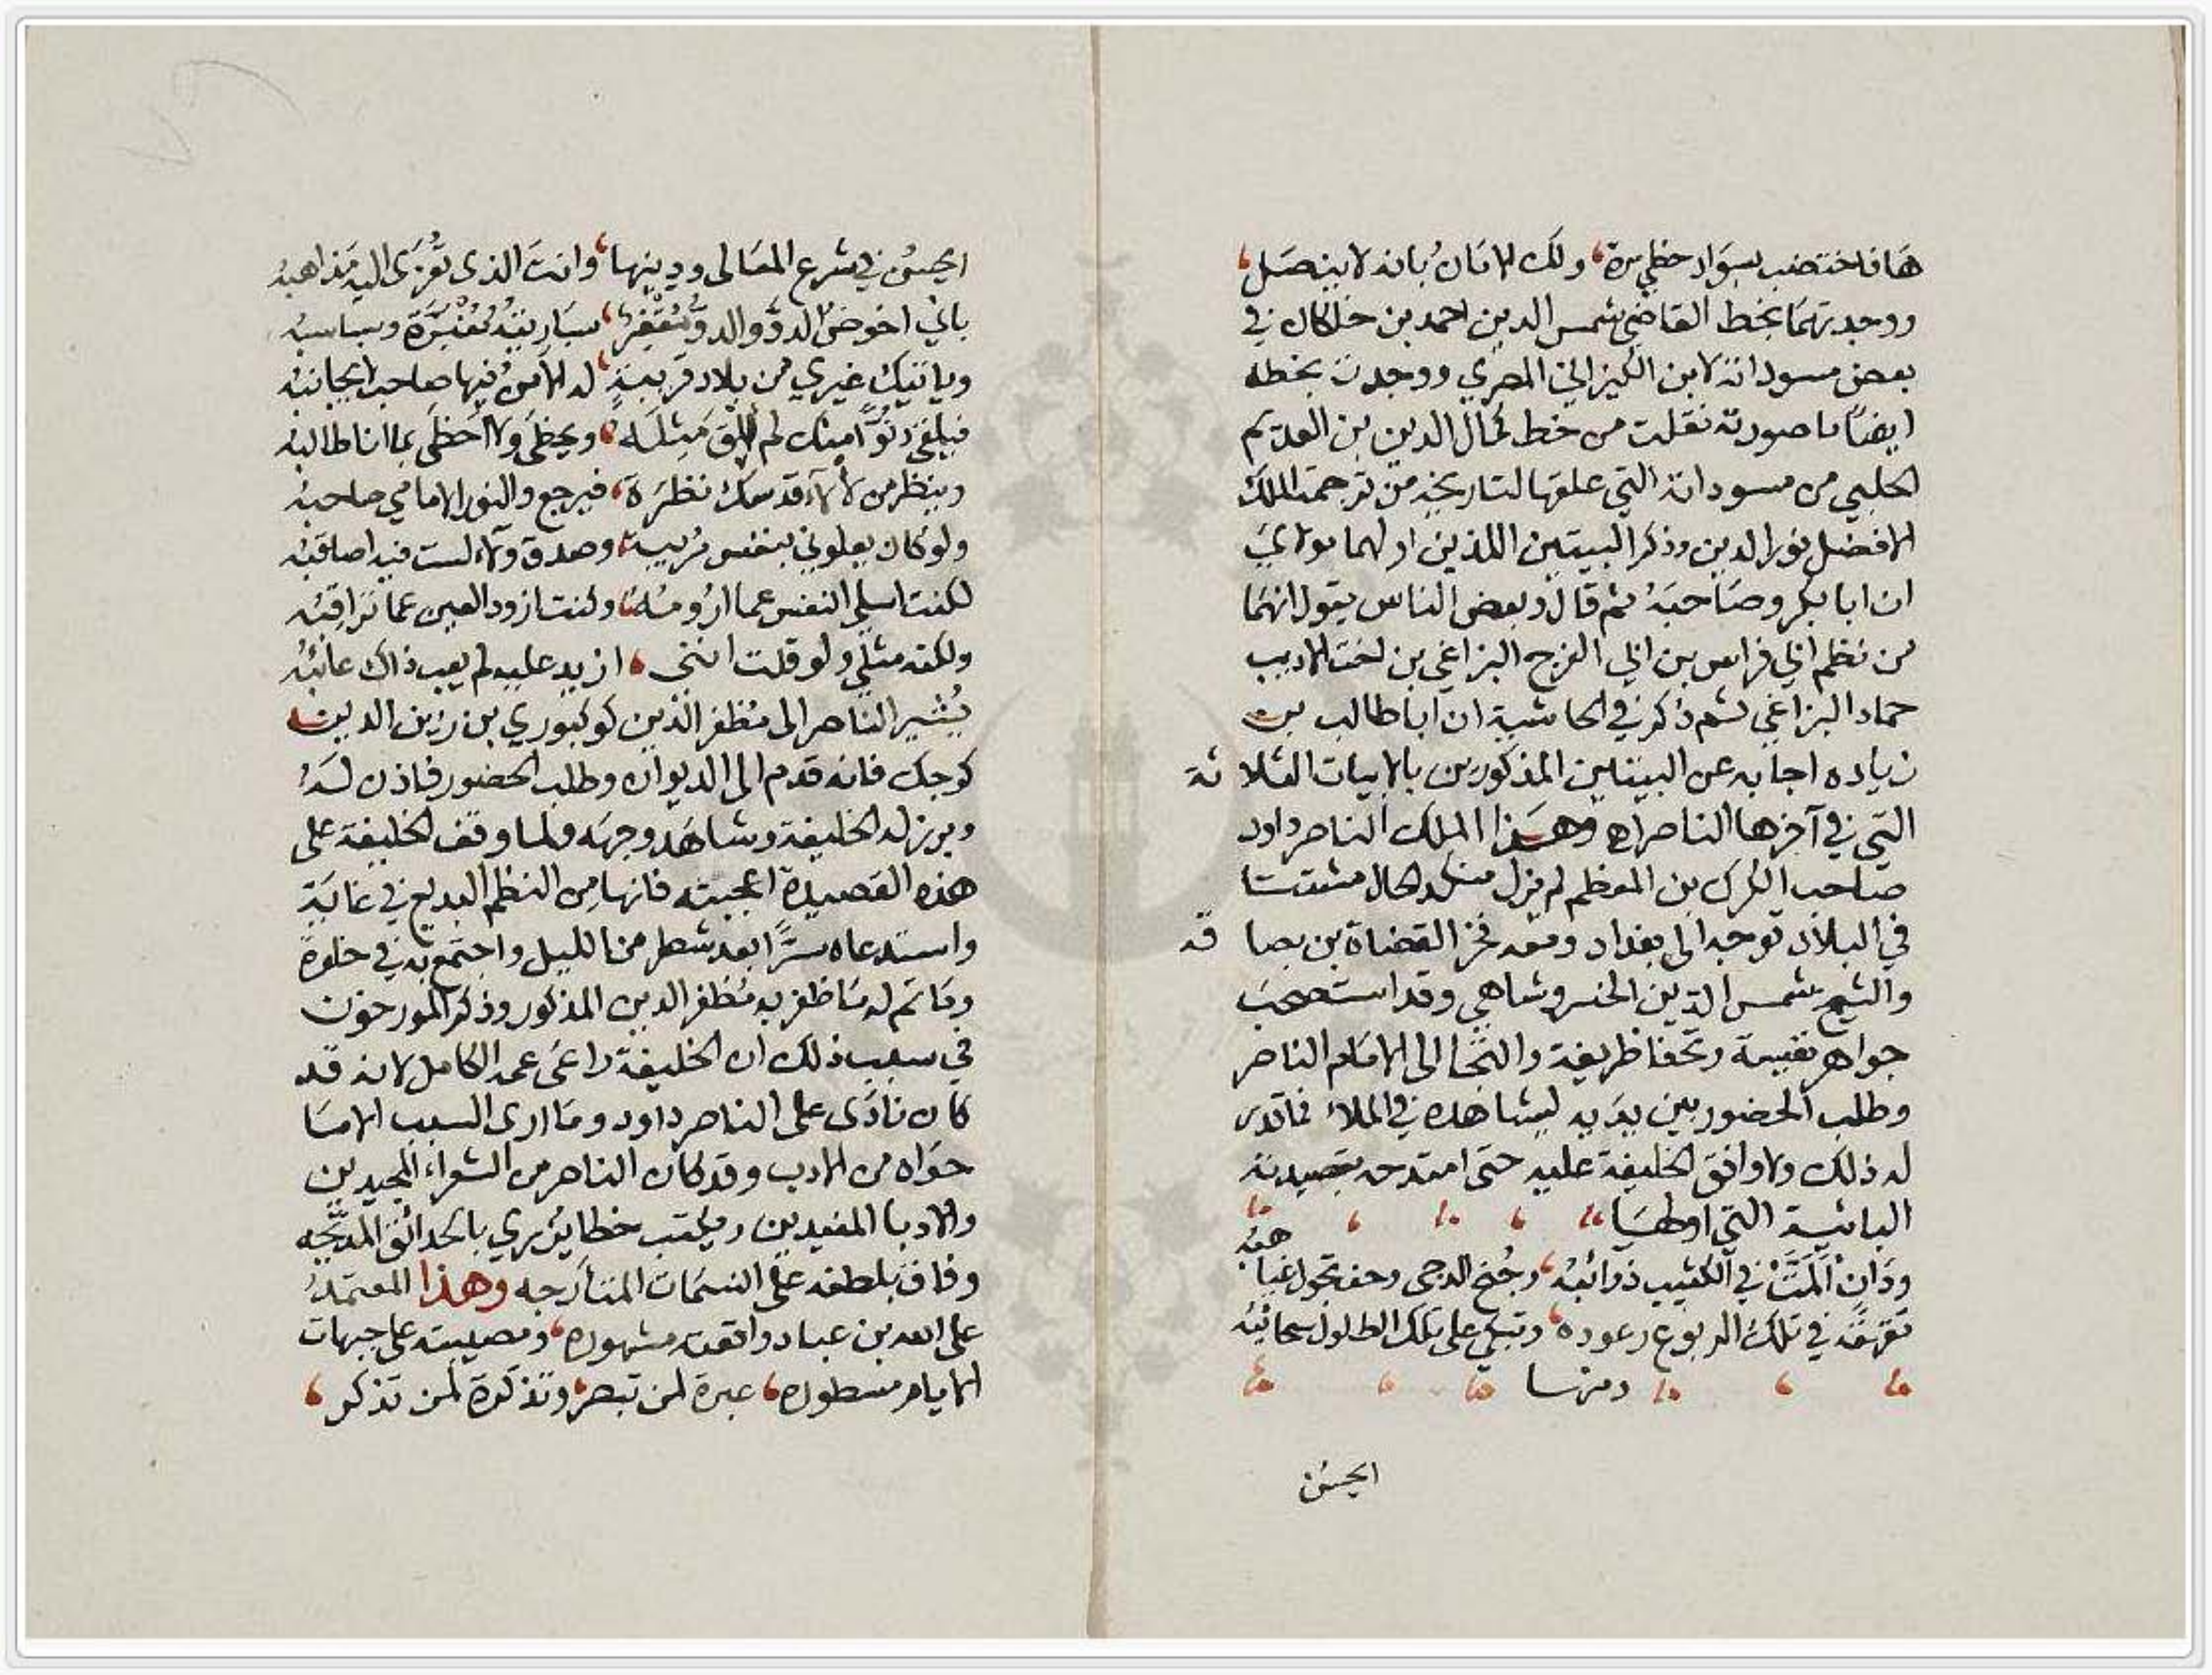 ها فاختضب بسواد حظي مرة، ولك الامان بانه لا ينصل،
ووجدتهما بخط القاضي شمس الدين احمد بن خلكان في
بعض مسوداته لابن الكيزاني المصري ووجدت بخطه
ايضًا ما صورته نقلت من خط كمال الدين بن العديم
الحلبي من مسوداته التي علقها لتاريخه من ترجمة الملك
الافضل نور الدين وذكر البيتين اللذين اولهما مولاي
ان ابا بكر وصاحبه ثم قال وبعض الناس يقول انهما
من نظم ابي فراس بن ابي الفرج البزاغي بن اخت الاديب
حماد البزاغي ثم ذكر في الحاشية ان ابا طالب بن
زياده اجابه عن البيتين المذكورين بالابيات الثلاثة
التي في آخرها الناصر اه وهذا الملك الناصر داود
صاحب الكرك بن المعظم لم يزل منكد الحال مشتتا
في البلاد توجه الى بغداد ومعه فخر القضاة بن بصاقه
والشيخ شمس الدين الخسروشاهي وقد استصحب
جواهر نفيسة وتحفا ظريفة والتجا الى الامام الناصر
وطلب الحضور بين يديه ليشاهده في الملاء فما قدر
له ذلك ولا وافق الخليفة عليه حتى امتدحه بقصيدته
البائية التي اولها
ودان المت في الكثيب ذوائبه، وجنح الدجى وحف تجول غياهبه
تقهقه في تلك الربوع رعوده، وتبكي على تلك الطلول سحائبه
ومنها
ايحسن
ايحسن في شرع المعالي ودينها، وانت الذي تعزى اليه مذاهبه
باني اخوض الدو والدو مقفر، سباريته مغبرة وسباسبه
وياتيك غيري من بلاد قريبة، له الامن فيها صاحب لا يجانبه
فيلقى دنوا منك لم الق مثله، ويحظى ولا احظى بما انا طالبه
وينظر من لألاء قدسك نظرة، فيرجع والنور الامامي صاحبه
ولو كان يعلوني بنفس ورتبة، وصدق ولاء لست فيه اصاقبه
لكنت اسلي النفس عما ارومه، وكنت ازود العين عما تراقبه
ولكنه مثلي ولو قلت انني، ازيد عليه لم يعب ذاك عائبه
يشير الناصر الى مظفر الدين كوكبوري بن زين الدين
كوجك فانه قدم الى الديوان وطلب الحضور فاذن له
وبرز له الخليفة وشاهد وجهه ولما وقف الخليفة على
هذه القصيدة اعجبته فانها من النظم البديع في غاية
واستدعاه سرًا بعد شطر من الليل واجتمع به في خلوة
وما تم له ما ظفر به مظفر الدين المذكور وذكر المورخون
في سبب ذلك ان الخليفة راعى عمه الكامل لانه قد
كان نادى على الناصر داود وما ارى السبب الا ما
حواه من الادب وقد كان الناصر من الشعراء المجيدين
والادبا المفيدين ويكتب خطا يزري بالحدائق المدبجه
وفاق بلطفه على النسمات المتأرجه وهذا المعتمد
على الله بن عباد واقعته مشهوره، ومصيبته على جبهات
الايام مسطوره، عبرة لمن تبصر، وتذكرة لمن تذكر،